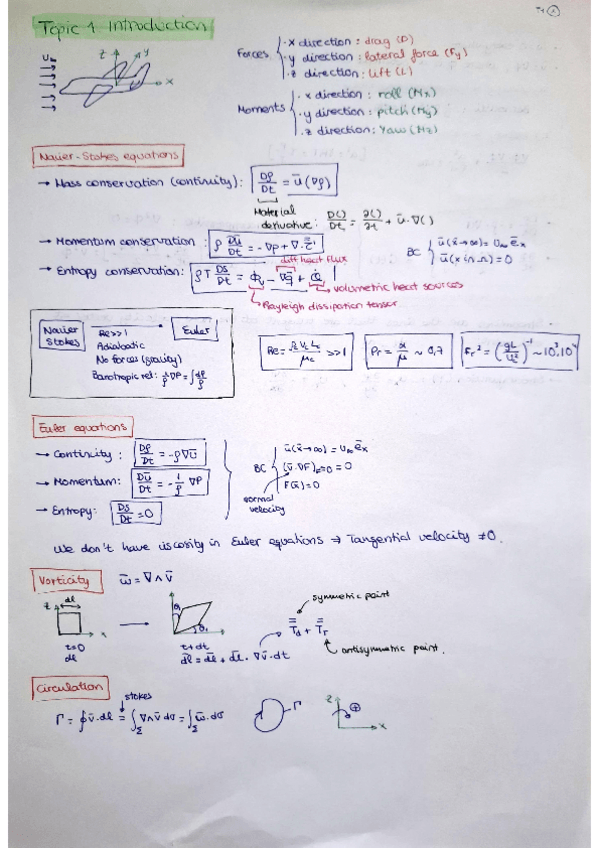 Topic 1 Introduction
Forces
· x direction: drag (D)
· y direction: lateral force (Fy)
· z direction: lift (L)
U∞
z
y
x
Moments
· x direction: roll (Mx)
· y direction: pitch (My)
· z direction: Yaw (Mz)
Navier-Stokes equations
→ Mass conservation (continuity): Dρ/Dt = ū(∇ρ)
Material derivative: D()/Dt = ∂()/∂t + ū·∇()
→ Momentum conservation: ρ Dū/Dt = -∇p + ∇·τ̿'
BC { ū(x̄→∞) = U∞ ēx
ū(x in Ω) = 0
diff heat flux
→ Entropy conservation: ρT Ds/Dt = Φv - ∇q̄ + Q̇
volumetric heat sources
Rayleigh dissipation tensor
Navier Stokes → Euler
Re>>1
Adiabatic
No forces (gravity)
Barotropic rel: 1/ρ ∇P = ∫dP/ρ
Re = ρc Uc Lc/μc >> 1
Pr = α/μ ~ 0,7
Fr² = (gL/Uc²)⁻¹ ~
Euler equations
→ Continuity: Dρ/Dt = -ρ∇ū
→ Momentum: Dū/Dt = -1/ρ ∇P
→ Entropy: Ds/Dt = 0
BC { ū(x̄→∞) = U∞ ēx
(ū·∇F)F=0 = 0
F(x̄) = 0
normal velocity
We don't have viscosity in Euler equations ⇒ Tangential velocity ≠0.
Vorticity ω̄ = ∇∧v̄
z
dl
x
t=0
dl
t+dt
dl̄ = dl̄ + dl̄·∇v̄·dt
symmetric point
T̿d + T̿r
antisymmetric point.
Circulation
stokes
Γ = ∮v̄·dl = ∫Σ ∇∧v̄ dσ = ∫Σ ω̄·dσ
Γ
z
+
x